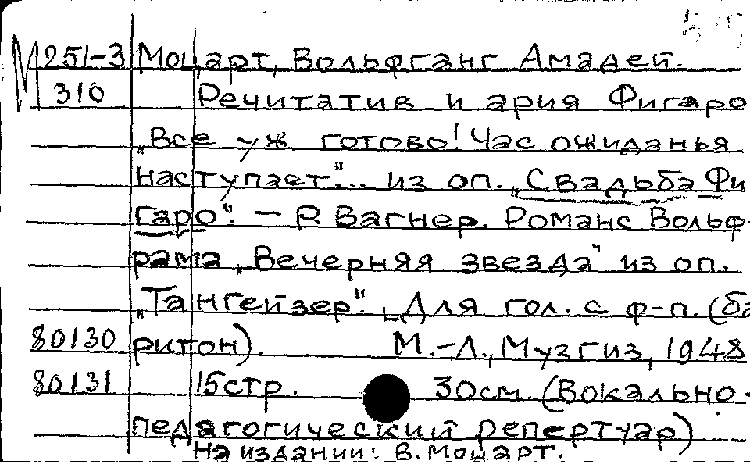 М251-3 Моцарт, Вольфганг Амадей.
310 Речитатив и ария Фигаро
„Все уж готово! Час ожиданья
наступает"... из оп. „Свадьба Фи
гаро". – Р. Вагнер. Романс Вольф-
рама „Вечерняя звезда" из оп.
„Тангейзер". Для гол. с ф-п. (ба
80130 ритон). М.-Л., Музгиз, 1948
80131 15стр. 30см (Вокально-
педагогический репертуар)
На издании: В. Моцарт.